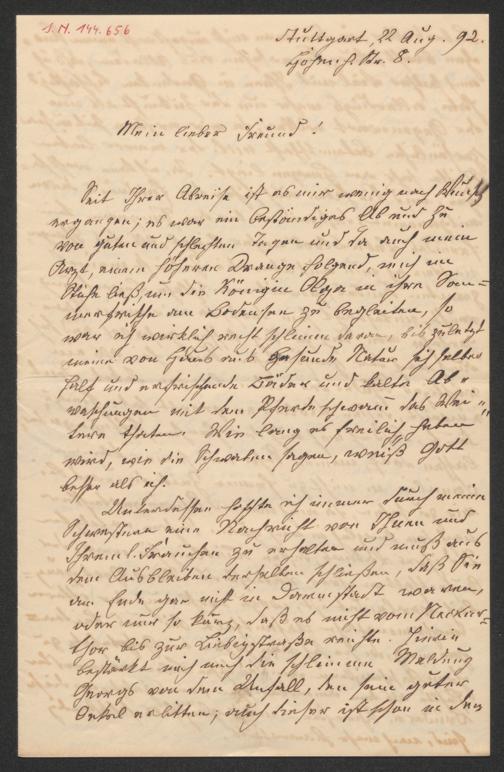 I. N. 144.656
Stuttgart, 22 Aug. 92.
Str. 8.
Mein lieber Freund!
Seit Ihrer Abreise ist es mir wenig nach Wunsch
ergangen; es war ein beständiges Ab und Zu
von guten und schlechten Tagen und da auch mein
Arzt, einem höheren Drange folgend, mich im
Stiche ließ, um die Königin Olga in ihre Som-
merfrische am Bodensee zu begleiten, so
war ich wirklich recht schlimm daran, bis zuletzt
meine von Haus aus gesunde Natur sich selber
half und erfrischende Bäder und kalte Ab-
waschungen mit dem Pferdeschwamm das Wei-
tere thaten. Wie lang es freilich „heben"
wird, wie die Schwaben sagen, weiß Gott
besser als ich.
Unterdessen hoffte ich immer durch meine
Schwestern eine Nachricht von Ihnen und
Ihrem l. Frauchen zu erhalten und muß aus
dem Ausbleiben derselben schließen, daß Sie
am Ende gar nicht in Darmstadt waren,
oder nur so kurz, daß es nicht vom Neckar-
thor bis zur Liebigstraße reichte. Hierin
bestärkt mich auch die schlimme Meldung
Georgs von dem Unfall, den sein guter
Onkel erlitten; auch dieser ist schon in den